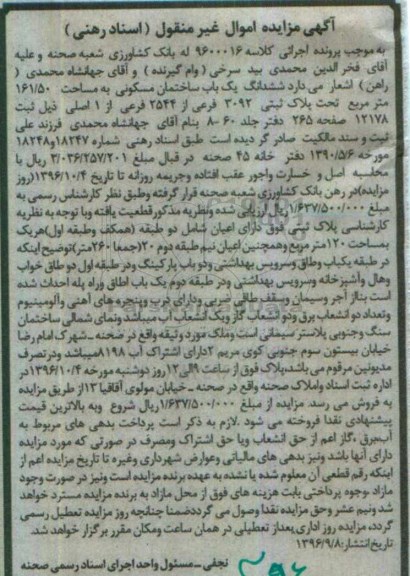 آگهی مزایده اموال غیر منقول (اسناد رهنی)
به موجب پرونده اجرائی کلاسه ۹۶۰۰۰۱۶ له بانک کشاورزی شعبه صحنه و علیه
آقای فخرالدین محمدی بید سرخی (وام گیرنده) و آقای جهانشاه محمدی (
راهن) اشعار می دارد ششدانگ یک باب ساختمان مسکونی به مساحت ۱۶۱/۵۰
متر مربع تحت پلاک ثبتی ۳۰۹۲ فرعی از ۲۵۴۴ فرعی از ۱ اصلی ذیل ثبت
۱۲۱۷۸ صفحه ۲۶۵ دفتر جلد ۶۰-۸ بنام آقای جهانشاه محمدی فرزند علی
ثبت و سند مالکیت صادر گردیده است طبق اسناد رهنی شماره ۱۸۲۴۷و۱۸۲۴۸
مورخه ۱۳۹۰/۵/۶ دفتر خانه ۴۵ صحنه در قبال مبلغ ۲/۰۳۶/۲۵۷/۲۰۱ ریال با
محاسبه اصل و خسارت واجور عقب افتاده وجریمه روزانه تا تاریخ ۱۳۹۶/۱۰/۴(روز
مزایده)در رهن بانک کشاورزی شعبه صحنه قرار گرفته وطبق نظر کارشناس رسمی به
مبلغ ۱/۶۳۷/۵۰۰/۰۰۰ریال ارزیابی شده ونظریه مذکورقطعیت یافته وبا توجه به نظریه
کارشناسی پلاک ثبتی فوق دارای اعیان شامل دو طبقه (همکف وطبقه اول)هریک
بمساحت ۱۲۰متر مربع وهمچنین اعیان نیم طبقه دوم ۲۰(جمعا ۲۶۰متر)توضیح اینکه
در طبقه یکباب وطاق وسرویس بهداشتی ودو باب پارکینگ ودر طبقه اول دو طاق خواب
وهال وآشپزخانه وسرویس بهداشتی ودر طبقه دوم یک باب اطاق وراه پله احداث شده
است بناز آجر وسیمان وسقف طاقی ضربی ودارای درب وپنجره های آهنی وآلومینیوم
وتعداد دو انشعاب برق ودو انشعاب گاز ویک انشعاب آب میباشد ونمای شمالی ساختمان
سنگ وجنوبی پلاستر سیمانی است وملک مورد وثیقه واقع در صحنه ـ شهرک امام رضا
خیابان بیستون سوم جنوبی کوی مریم ۲دارای اشتراک آب ۸۱۹۸میباشد ودر تصرف
مدیونین مرقوم می باشد،پلاک فوق از ساعت ۹الی۱۲روز دوشنبه مورخه ۱۳۹۶/۱۰/۴در
اداره ثبت اسناد واملاک صحنه واقع در صحنه ـ خیابان مولوی آقاقیا ۱۳از طریق مزایده
به فروش می رسد. مزایده از مبلغ ۱/۶۳۷/۵۰۰/۰۰۰ریال شروع وبه بالاترین قیمت
پیشنهادی نقدا فروخته می شود .لازم به ذکر است پرداخت بدهی های مربوط به
آب،برق ،گاز اعم از حق انشعاب ویا حق اشتراک ومصرف در صورتی که مورد مزایده
دارای آنها باشد ونیز بدهی های مالیاتی وعوارض شهرداری وغیره تا تاریخ مزایده اعم از
اینکه رقم قطعی آن معلوم شده یا نشده به عهده برنده مزایده است ونیز در صورت وجود
مازاد ،وجوه پرداختی بابت هزینه های فوق از محل مازاد به برنده مزایده مسترد خواهد
شد ونیم عشر وحق مزایده نقدا وصول می گرددضمنا چنانچه روز مزایده تعطیل رسمی
گردد، مزایده روز اداری بعداز تعطیلی در همان ساعت ومکان مقرر برگزار خواهد شد.
تاریخ انتشار:۱۳۹۶/۹/۸
نجفی ـ مسئول واحد اجرای اسناد رسمی صحنه